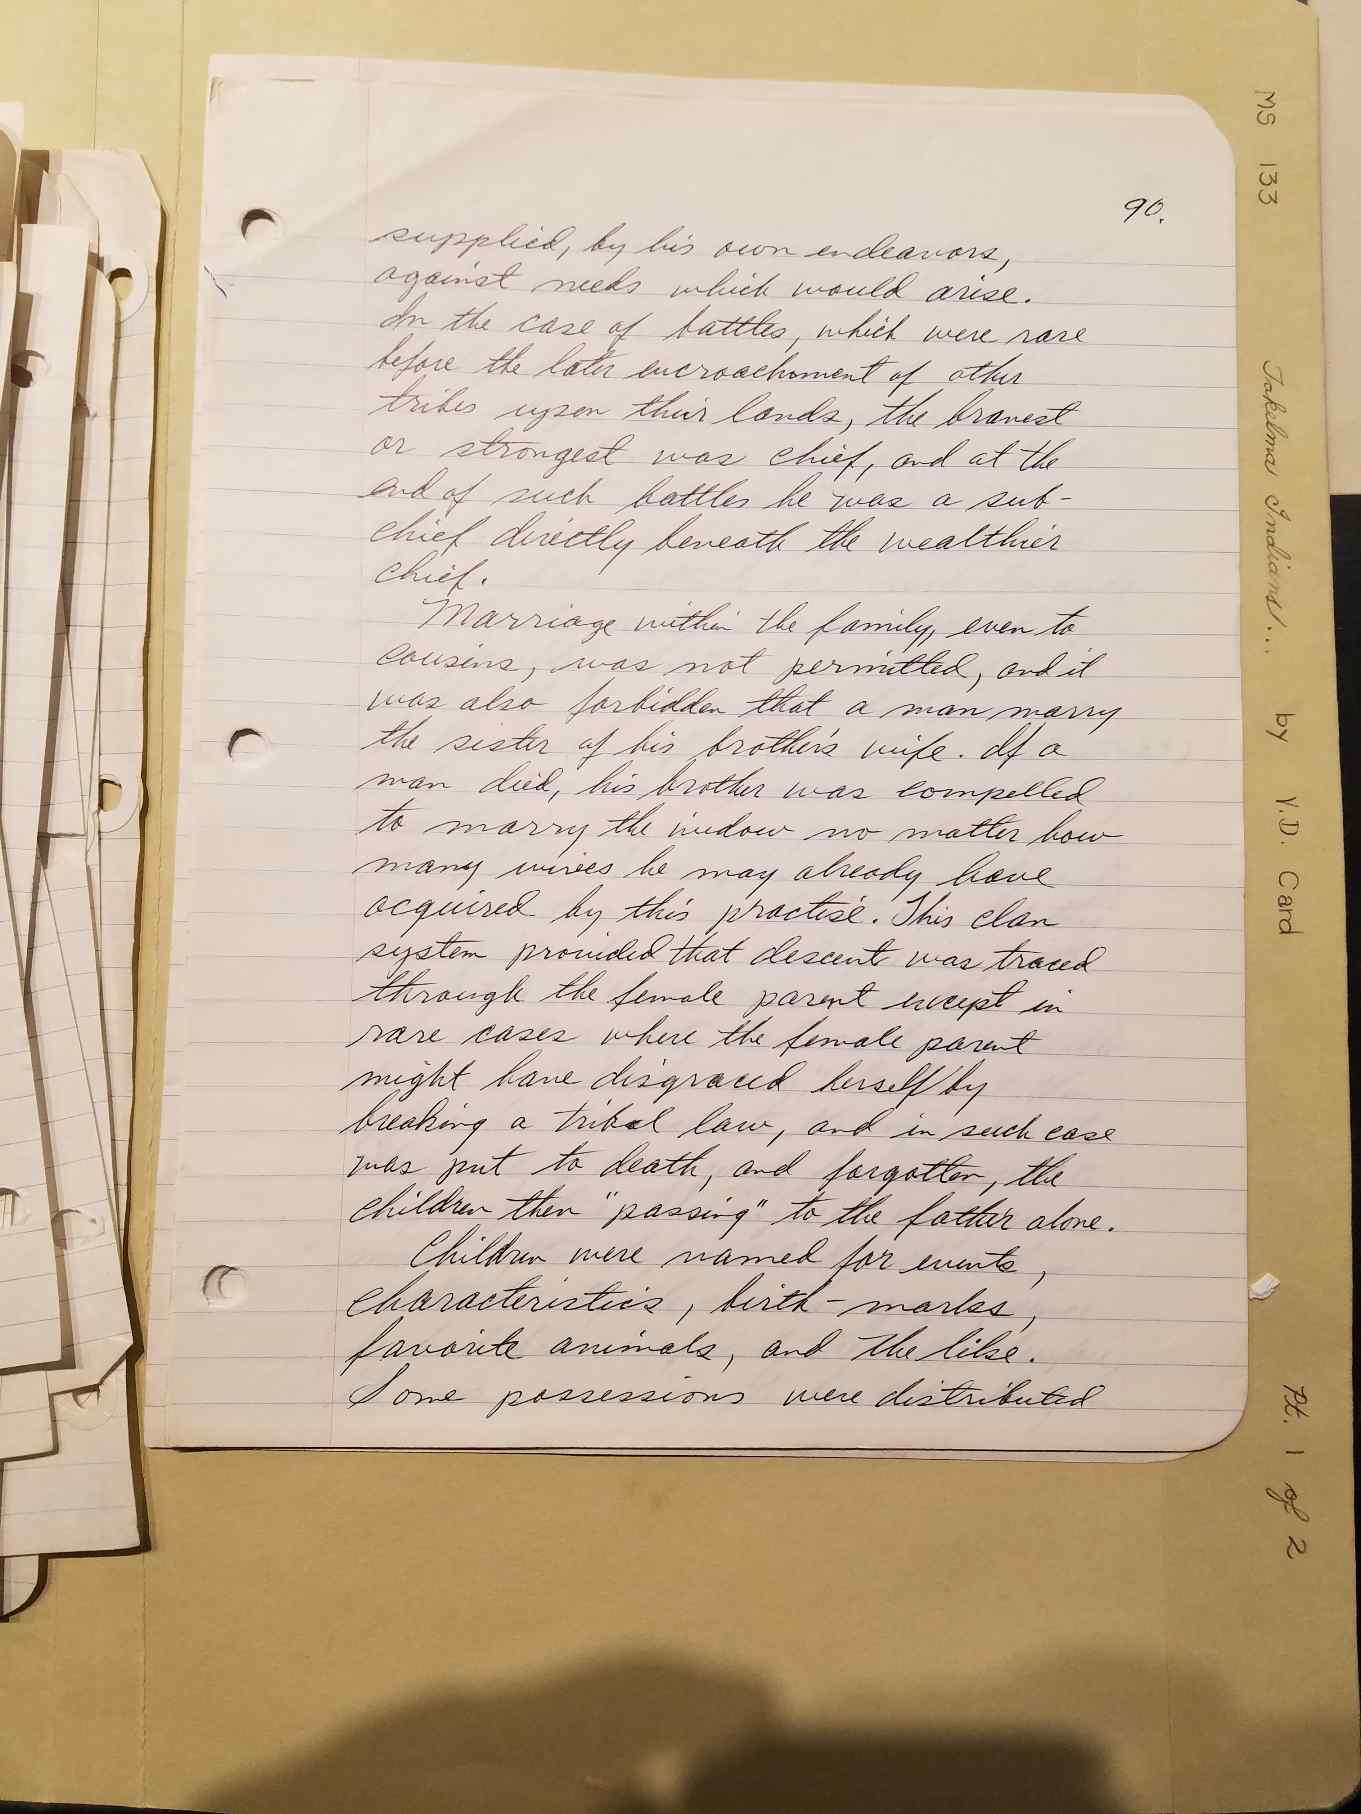 90.
supplied, by his own endeavors,
against needs which would arise.
In the case of battles, which were rare
before the later encroachment of other
tribes upon their lands, the bravest
or strongest was chief, and at the
end of such battles he was a sub-
chief directly beneath the wealthier
chief.
Marriage within the family, even to
cousins, was not permitted, and it
was also forbidden that a man marry
the sister of his brother's wife. If a
man died, his brother was compelled
to marry the widow no matter how
many wives he may already have
acquired by this practise. This clan
system provided that descent was traced
through the female parent except in
rare cases where the female parent
might have disgraced herself by
breaking a tribal law, and in such case
was put to death, and forgotten, the
children then "passing" to the father alone.
Children were named for events,
characteristics, birth-marks,
favorite animals, and the like.
Some possessions were distributed
MS 133 Takelma Indians... by Y.D. Card Pt. 1 of 2